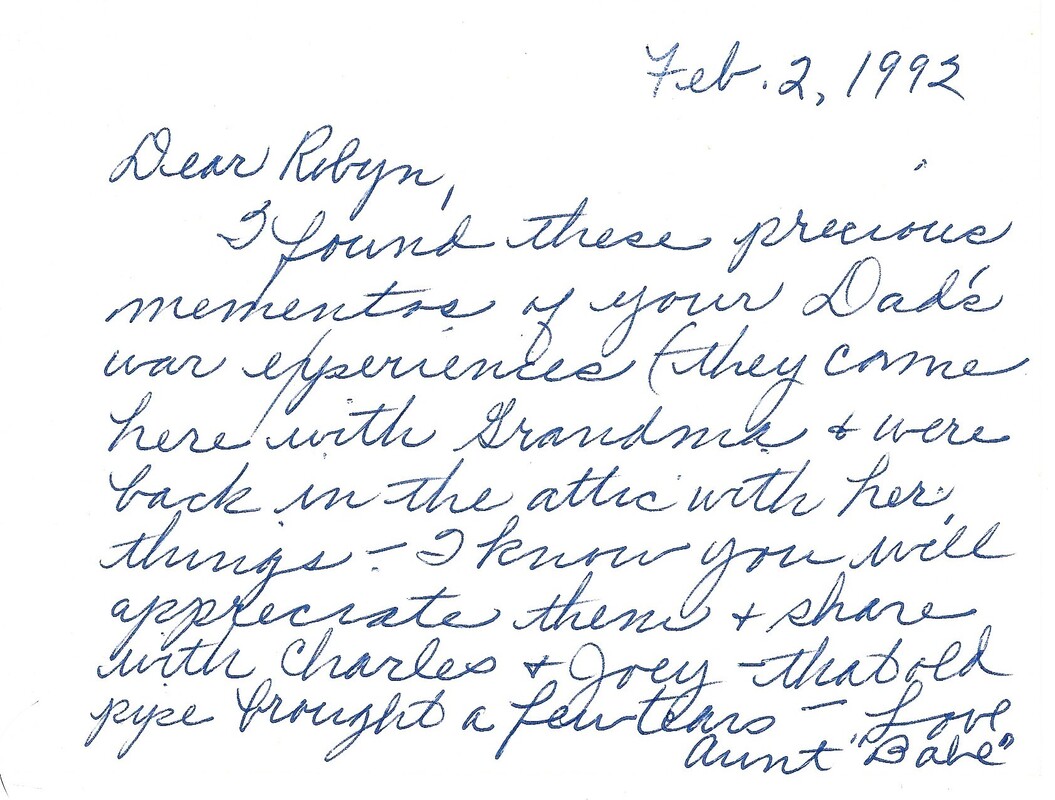 Feb. 2, 1992
Dear Robyn,
I found these precious
mementos of your Dad's
war experiences (they came
here with Grandma & were
back in the attic with her
things - I know you will
appreciate them & share
with Charles & Joey - that old
pipe brought a few tears - Love
Aunt "Babe"